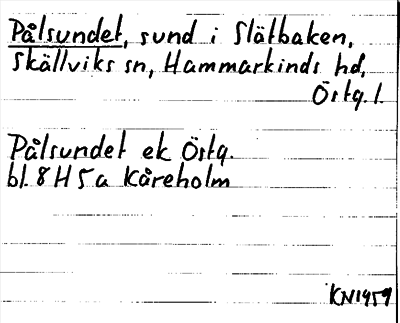 Pålsundet, sund i Slätbaken,
Skällviks sn, Hammarkinds hd,
Östg. l.
Pålsundet ek Östg.
bl. 8 H 5 a Kåreholm
KN1959